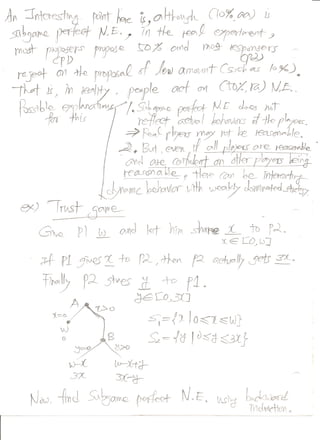 An Interesting point here is, although (10%, aa) is
subgame perfect N.E., in the real experiment,
most proposers propose 50% and most responders
(P1) (P2)
reject on the proposal of low amount (such as 10%).
That is, in reality, people act on (50%, ra) N.E.
Possible explanations
for this
1. Subgame perfect N.E does not
reflect actual behaviors of the players.
⇒ Real players may not be reasonable.
2. But, even if all players are reasonable
and are confident on other players being
reasonable, there can be interesting
dynamic behavior with weakly dominated strategy
ex) Trust game
Give P1 w and let him share x to P2.
x∈[0,w]
If P1 gives x to P2, then P2 actually gets 3x.
Finally P2 shares y to P1.
y∈[0,3x]
A
x=0 x>0
w
0
B
y=0 y>0
w-x w-x+y
3x 3x-y
S₁={x|0≤x≤w}
S₂={y|0≤y≤3x}
Now find Subgame perfect N.E. using backward
induction.